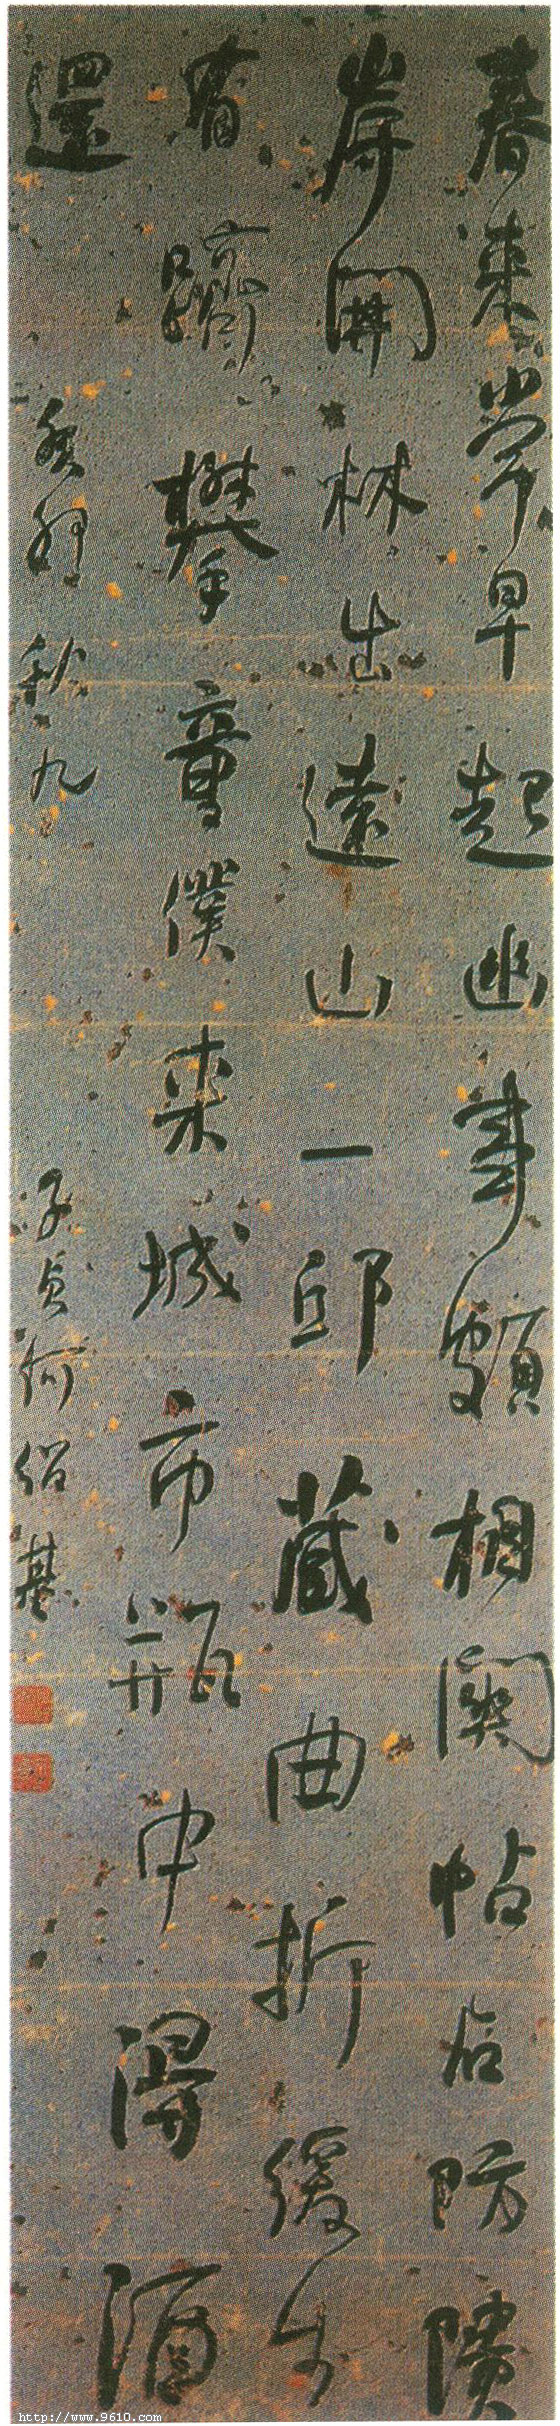 春來常早起幽事頗相關帖石防隤
岸開林出遠山一邱藏曲折緩步
有躋攀童僕来城市瓶中得酒
還
癸卯秋九
子貞何紹基
http://www.9610.com